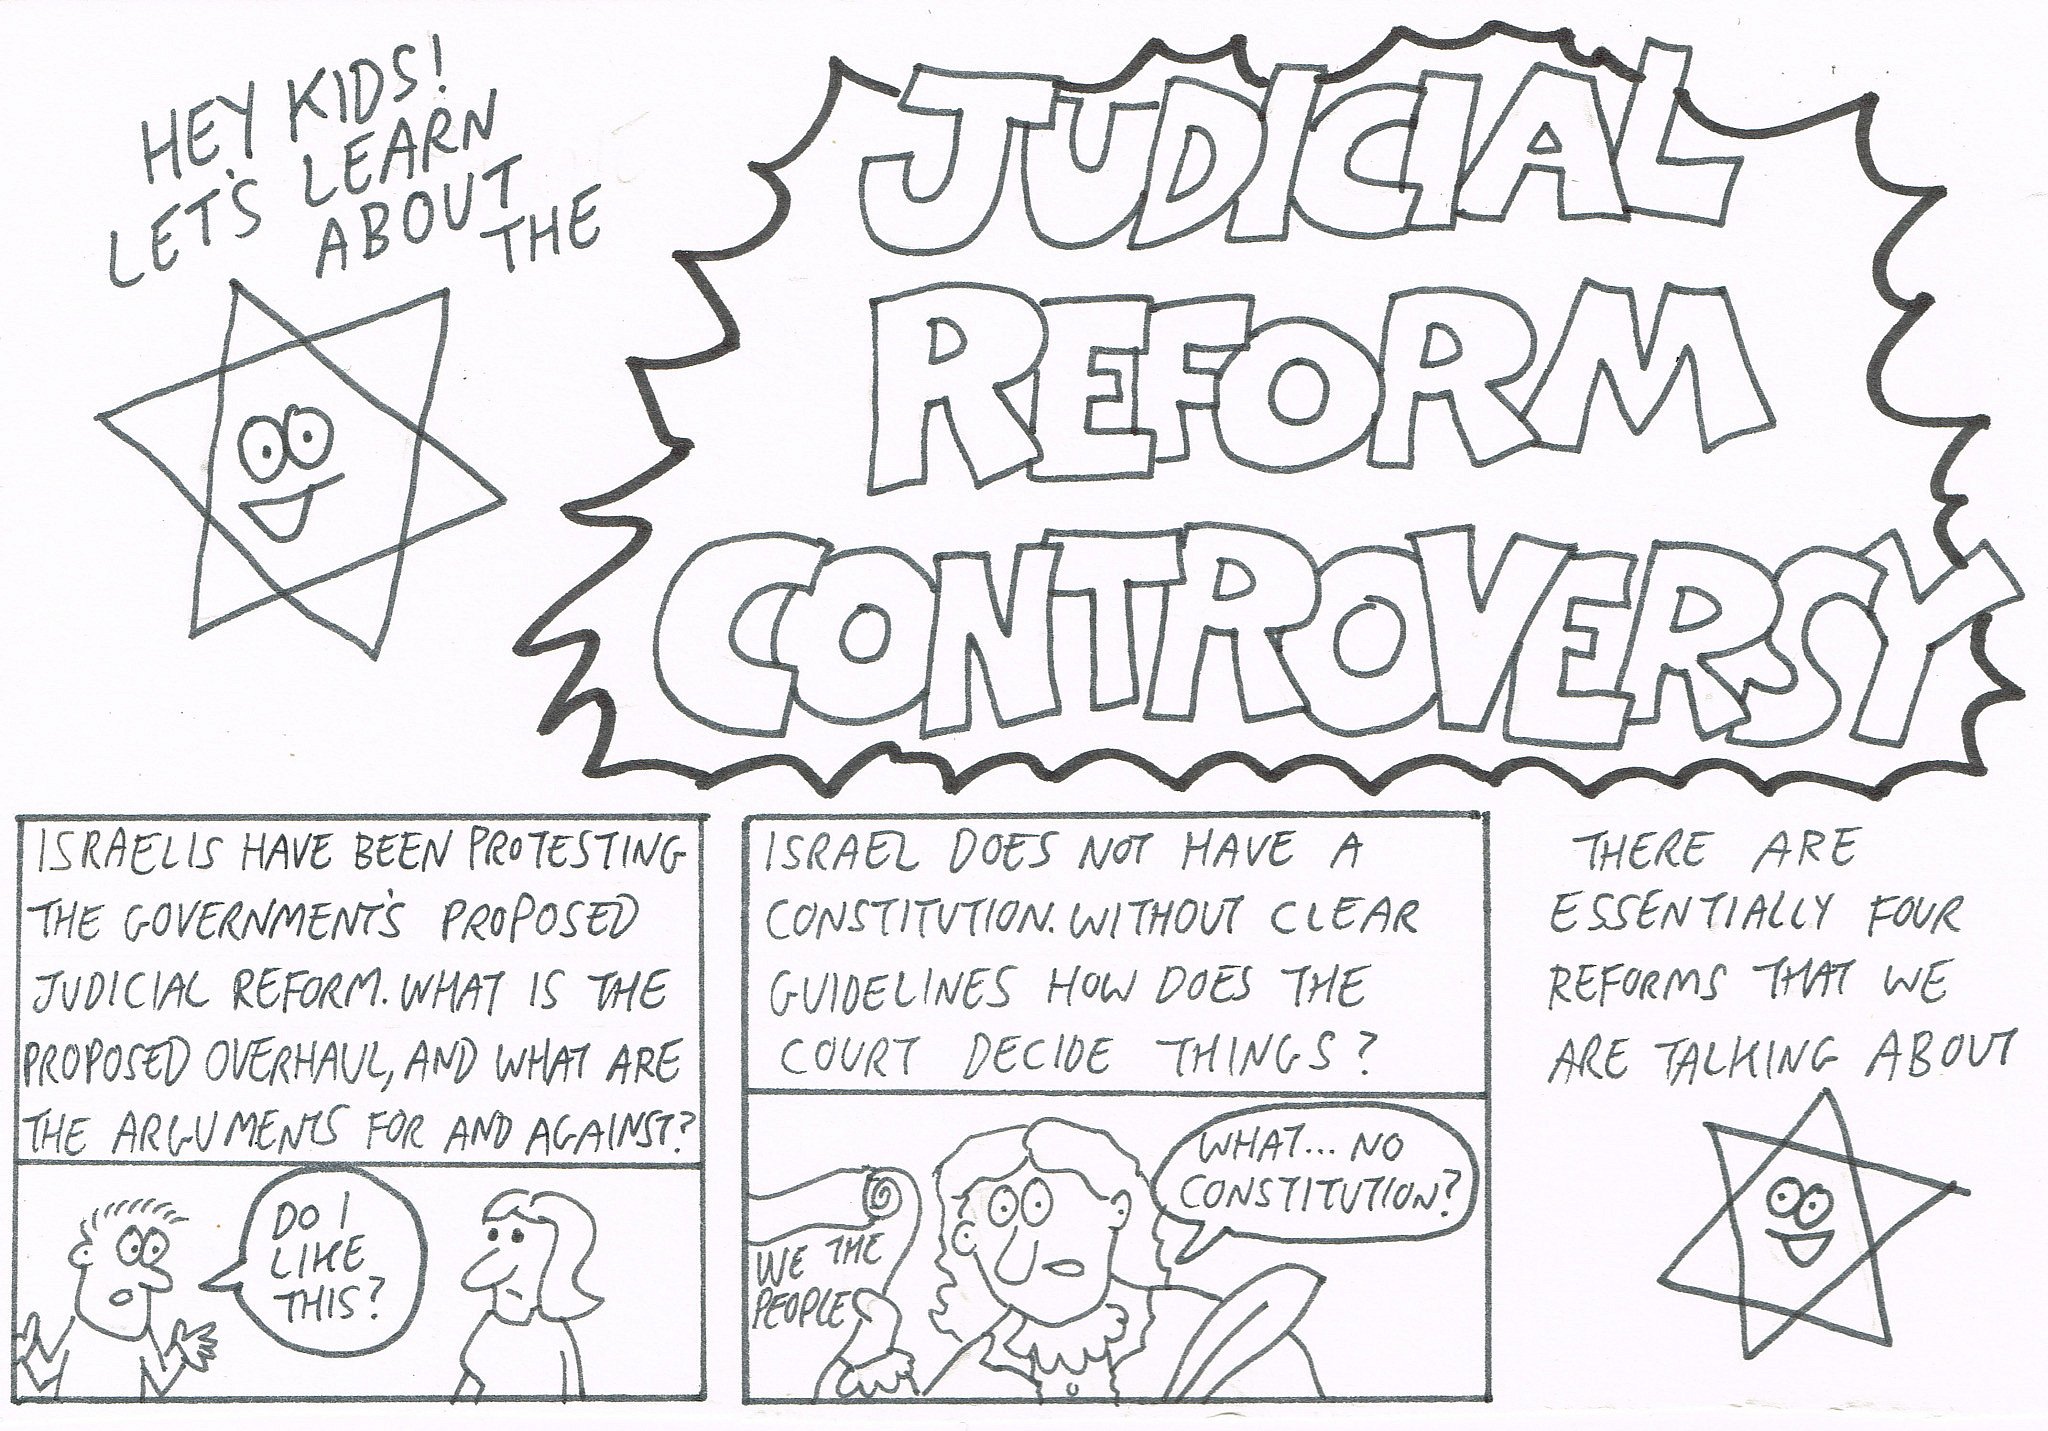 HEY KIDS!
LET'S LEARN
ABOUT THE
JUDICIAL
REFORM
CONTROVERSY
ISRAELIS HAVE BEEN PROTESTING
THE GOVERNMENT'S PROPOSED
JUDICIAL REFORM. WHAT IS THE
PROPOSED OVERHAUL, AND WHAT ARE
THE ARGUMENTS FOR AND AGAINST?
DO I
LIKE
THIS?
ISRAEL DOES NOT HAVE A
CONSTITUTION. WITHOUT CLEAR
GUIDELINES HOW DOES THE
COURT DECIDE THINGS?
WE THE
PEOPLE
WHAT... NO
CONSTITUTION?
THERE ARE
ESSENTIALLY FOUR
REFORMS THAT WE
ARE TALKING ABOUT